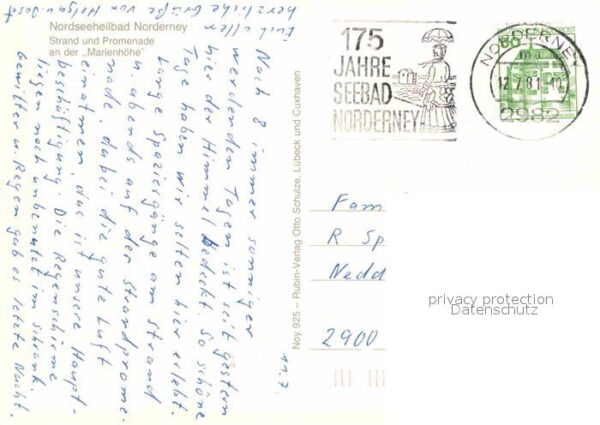 Nordseeheilbad Norderney
Strand und Promenade
an der „Marienhöhe"
11.7.
Nach 8 immer sonniger
werdenden Tagen ist seit gestern
hier der Himmel bedeckt. So schöne
Tage haben wir selten hier erlebt.
Lange Spaziergänge am Strand
u. abends auf der Strandprome-
nade, dabei die gute Luft
einatmen, das ist unsere Haupt-
beschäftigung. Die Regenschirme
liegen noch unbenutzt im Schrank.
Gewitter u. Regen gab es letzte Nacht.
Euch allen
herzliche Grüße von Helga u. Josef
Noy 925 – Rubin-Verlag Otto Schulze, Lübeck und Cuxhaven
175
JAHRE
SEEBAD
NORDERNEY
NORDERNEY
ma
12.7.81
2982
60
Fam
R. Sp
Nedd
2900
privacy protection
Datenschutz